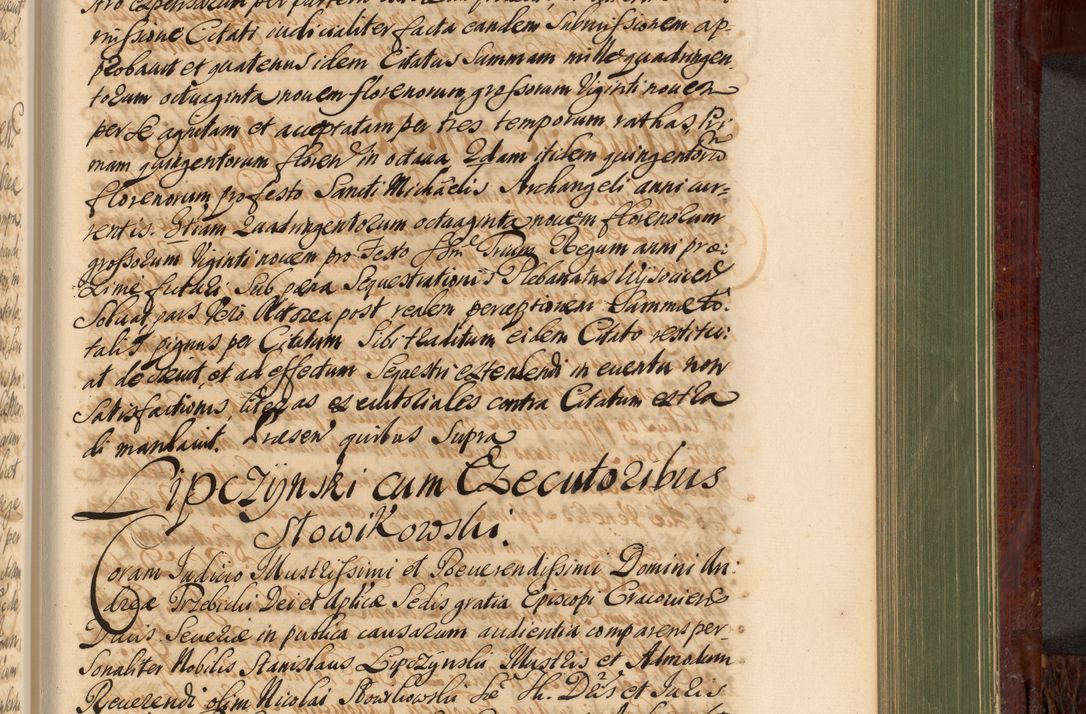 tro expensarum per partem
missione Citati iudicialiter facta eandem Submissionem ap-
probauit et quatenus idem Citatus Summam mille quadringen
torum octuaginta nouem florenorum, grossorum Viginti nouem
per se agnitam et acceptatam per tres temporum rathas, Pri
mam quingentorum floren in octaua 2dam itidem quingentoru
florenorum pro festo Sancti Michaelis Archangeli anni cur-
rentis. 3tiam Quadringentorum octuaginta nouem florenorum
grossorum Viginti nouem pro Festo SSmor Trium Regum anni pro:
xime futuri Sub paena Sequestrationis Plebanatus
Soluat, pars Vero Actorea post realem perceptionem Summae to:
talis pignus per Citatum Sibi traditum eidem Citato restitu:
at decreuit, et ad effectum Sequestri extendendi in euentu non
Satisfactionis, literas executoriales contra Citatum extra
di mandauit. Praesen quibus Supra
Lipczÿnski cum Executoribus
Słowikowski.
Coram Iudicio Illustrissimi et Reuerendissimi Domini An:
dreae Trzebicki Dei et Aplicae Sedis gratia Episcopi Cracouien
Ducis Seueriae in publica causarum audientia comparens per-
sonaliter Nobilis Stanislaus Lipczÿnski Illustris et Admodum
Reuerendi olim Nicolai Słowikowski Se Th. Dris et Iuris